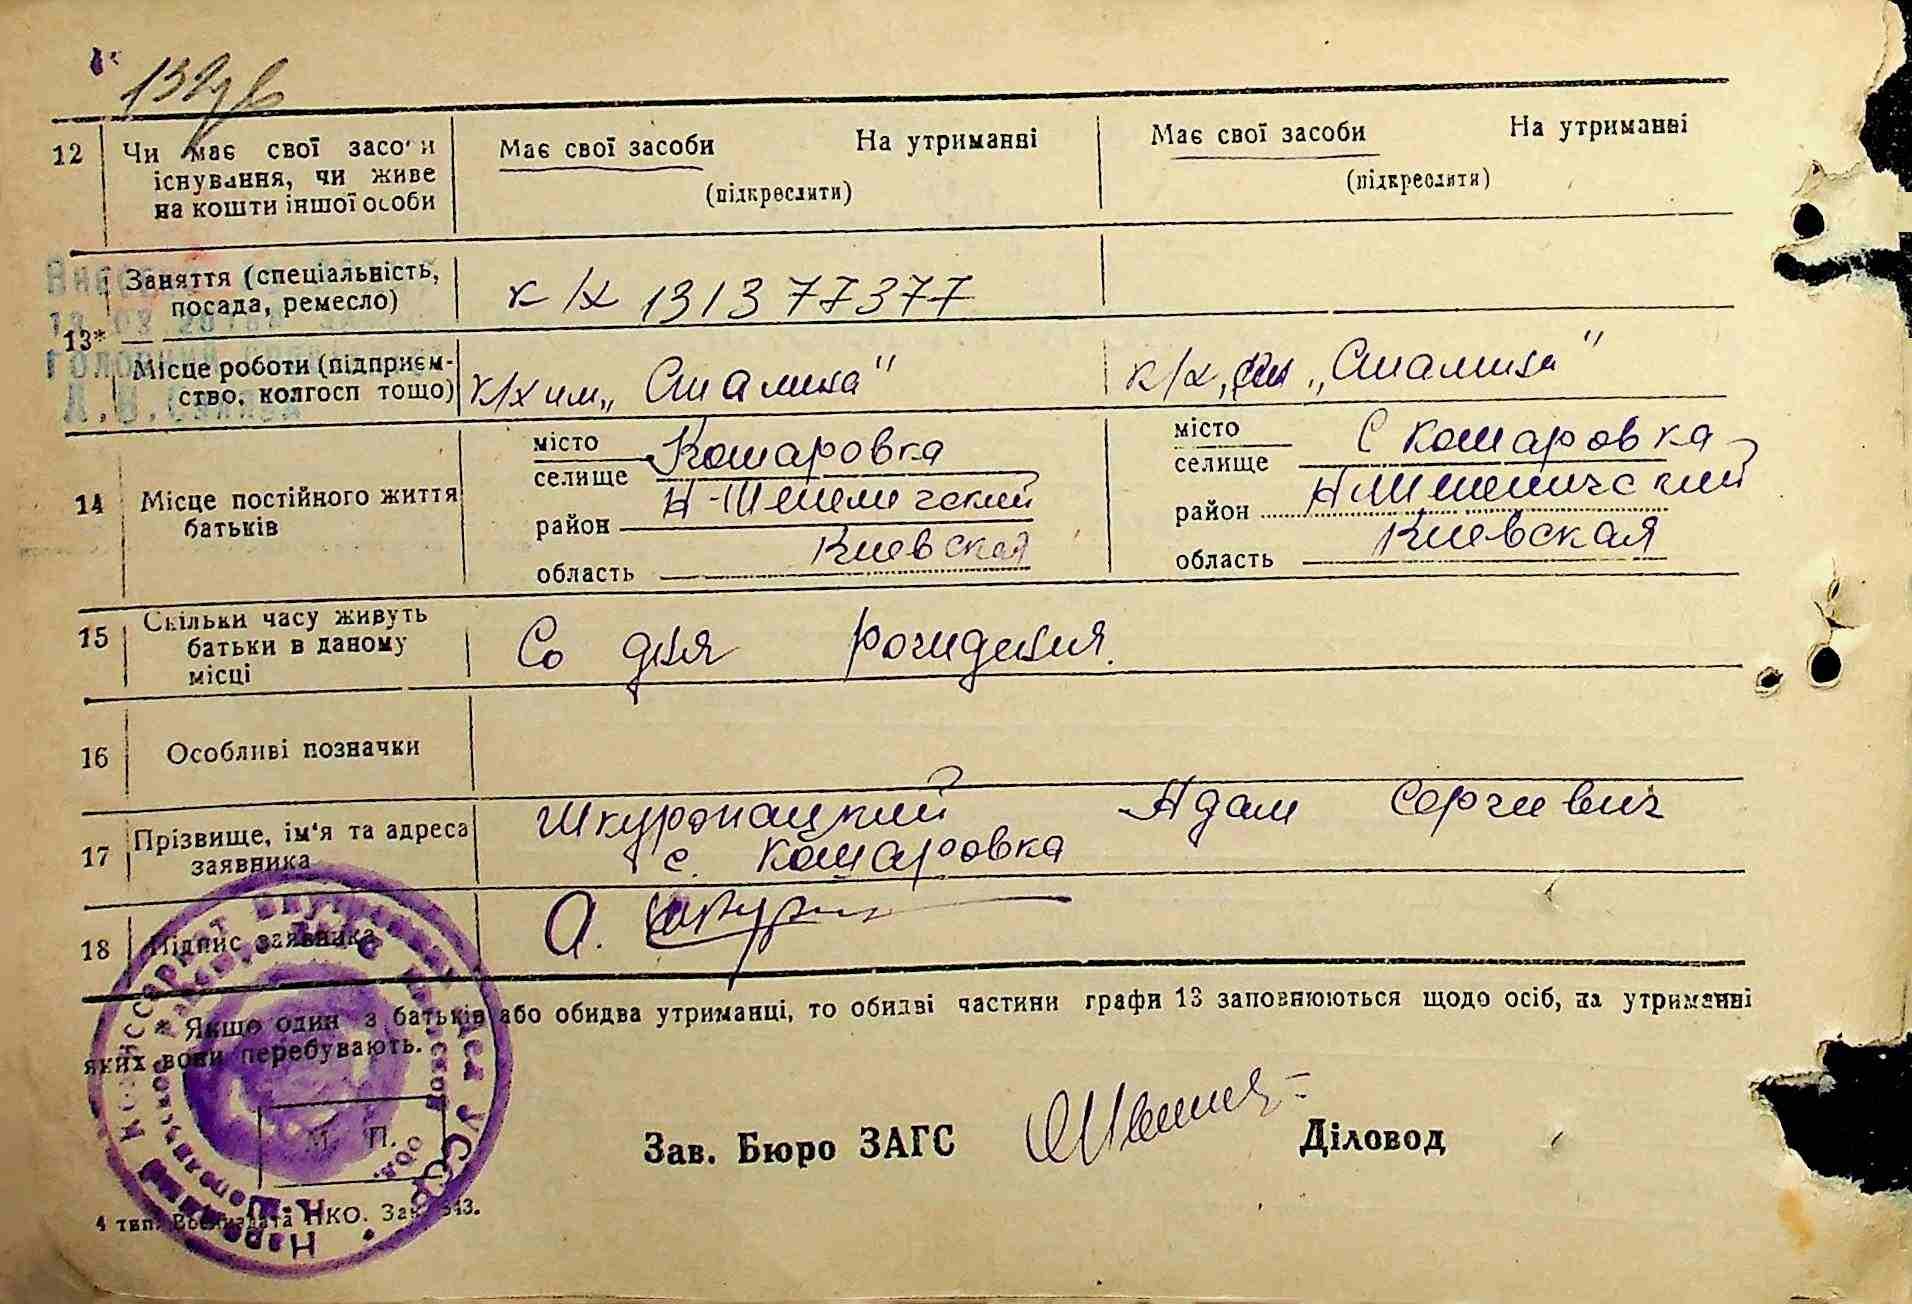 132
12 Чи має свої засоби Має свої засоби На утриманні Має свої засоби На утриманні
існування, чи живе (підкреслити) (підкреслити)
на кошти іншої особи
Заняття (спеціальність, к/х 131377377
посада, ремесло)
13*
Місце роботи (підприєм- к/х им „Сталина" к/х им „Сталина"
ство, колгосп тощо)
місто Кошаровка місто С Кошаровка
селище селище
14 Місце постійного життя район Н-Шепеличский район Н-Шепеличский
батьків область Киевская область Киевская
15 Скільки часу живуть Со дня рождения.
батьки в даному
місці
16 Особливі позначки
17 Прізвище, ім'я та адреса Шкуропацкий Адам Сергиевич
заявника с. Кошаровка
18 Підпис заявника А.
* Якщо один з батьків або обидва утриманці, то обидві частини графи 13 заповнюються щодо осіб, на утриманні
яких вони перебувають.
М. П.
Зав. Бюро ЗАГС Діловод
4 тип. Воениздата НКО. Зак. 343.